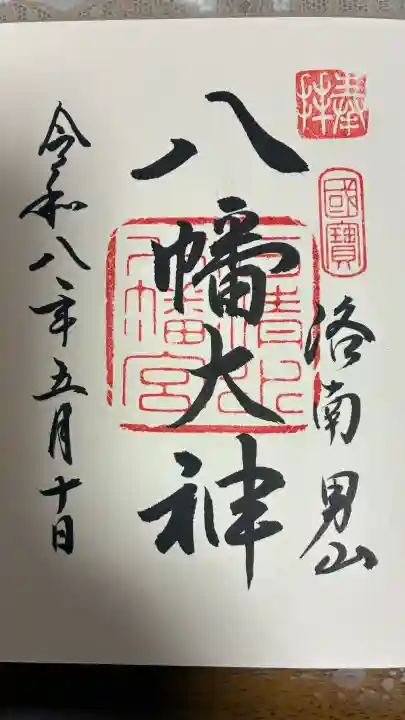 奉拝
國寶
洛南男山
八幡大神
石清水八幡宮
令和八年五月十日